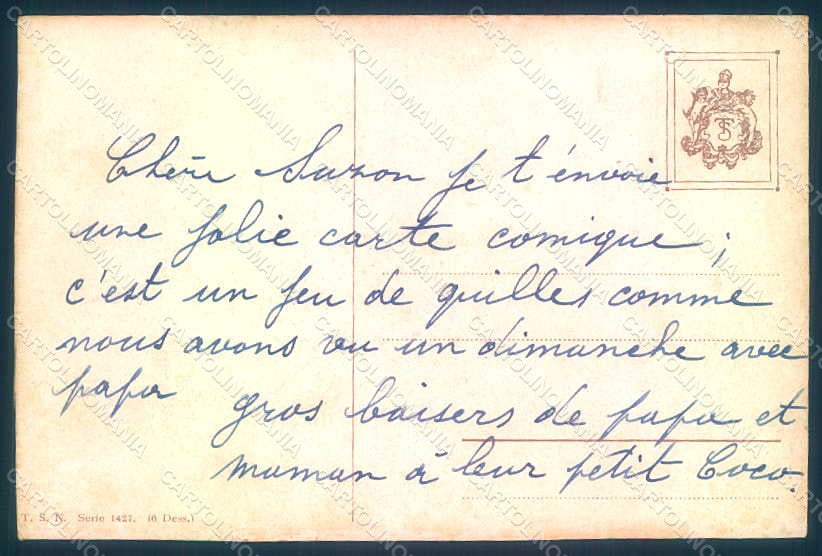 Chère Suzon je t'envoie
une jolie carte comique;
c'est un jeu de quilles comme
nous avons vu un dimanche avec
papa
gros baisers de papa et
maman à leur petit Coco.
T. S. N. Serie 1427. (6 Dess.)
TS
CARTOLINOMANIA